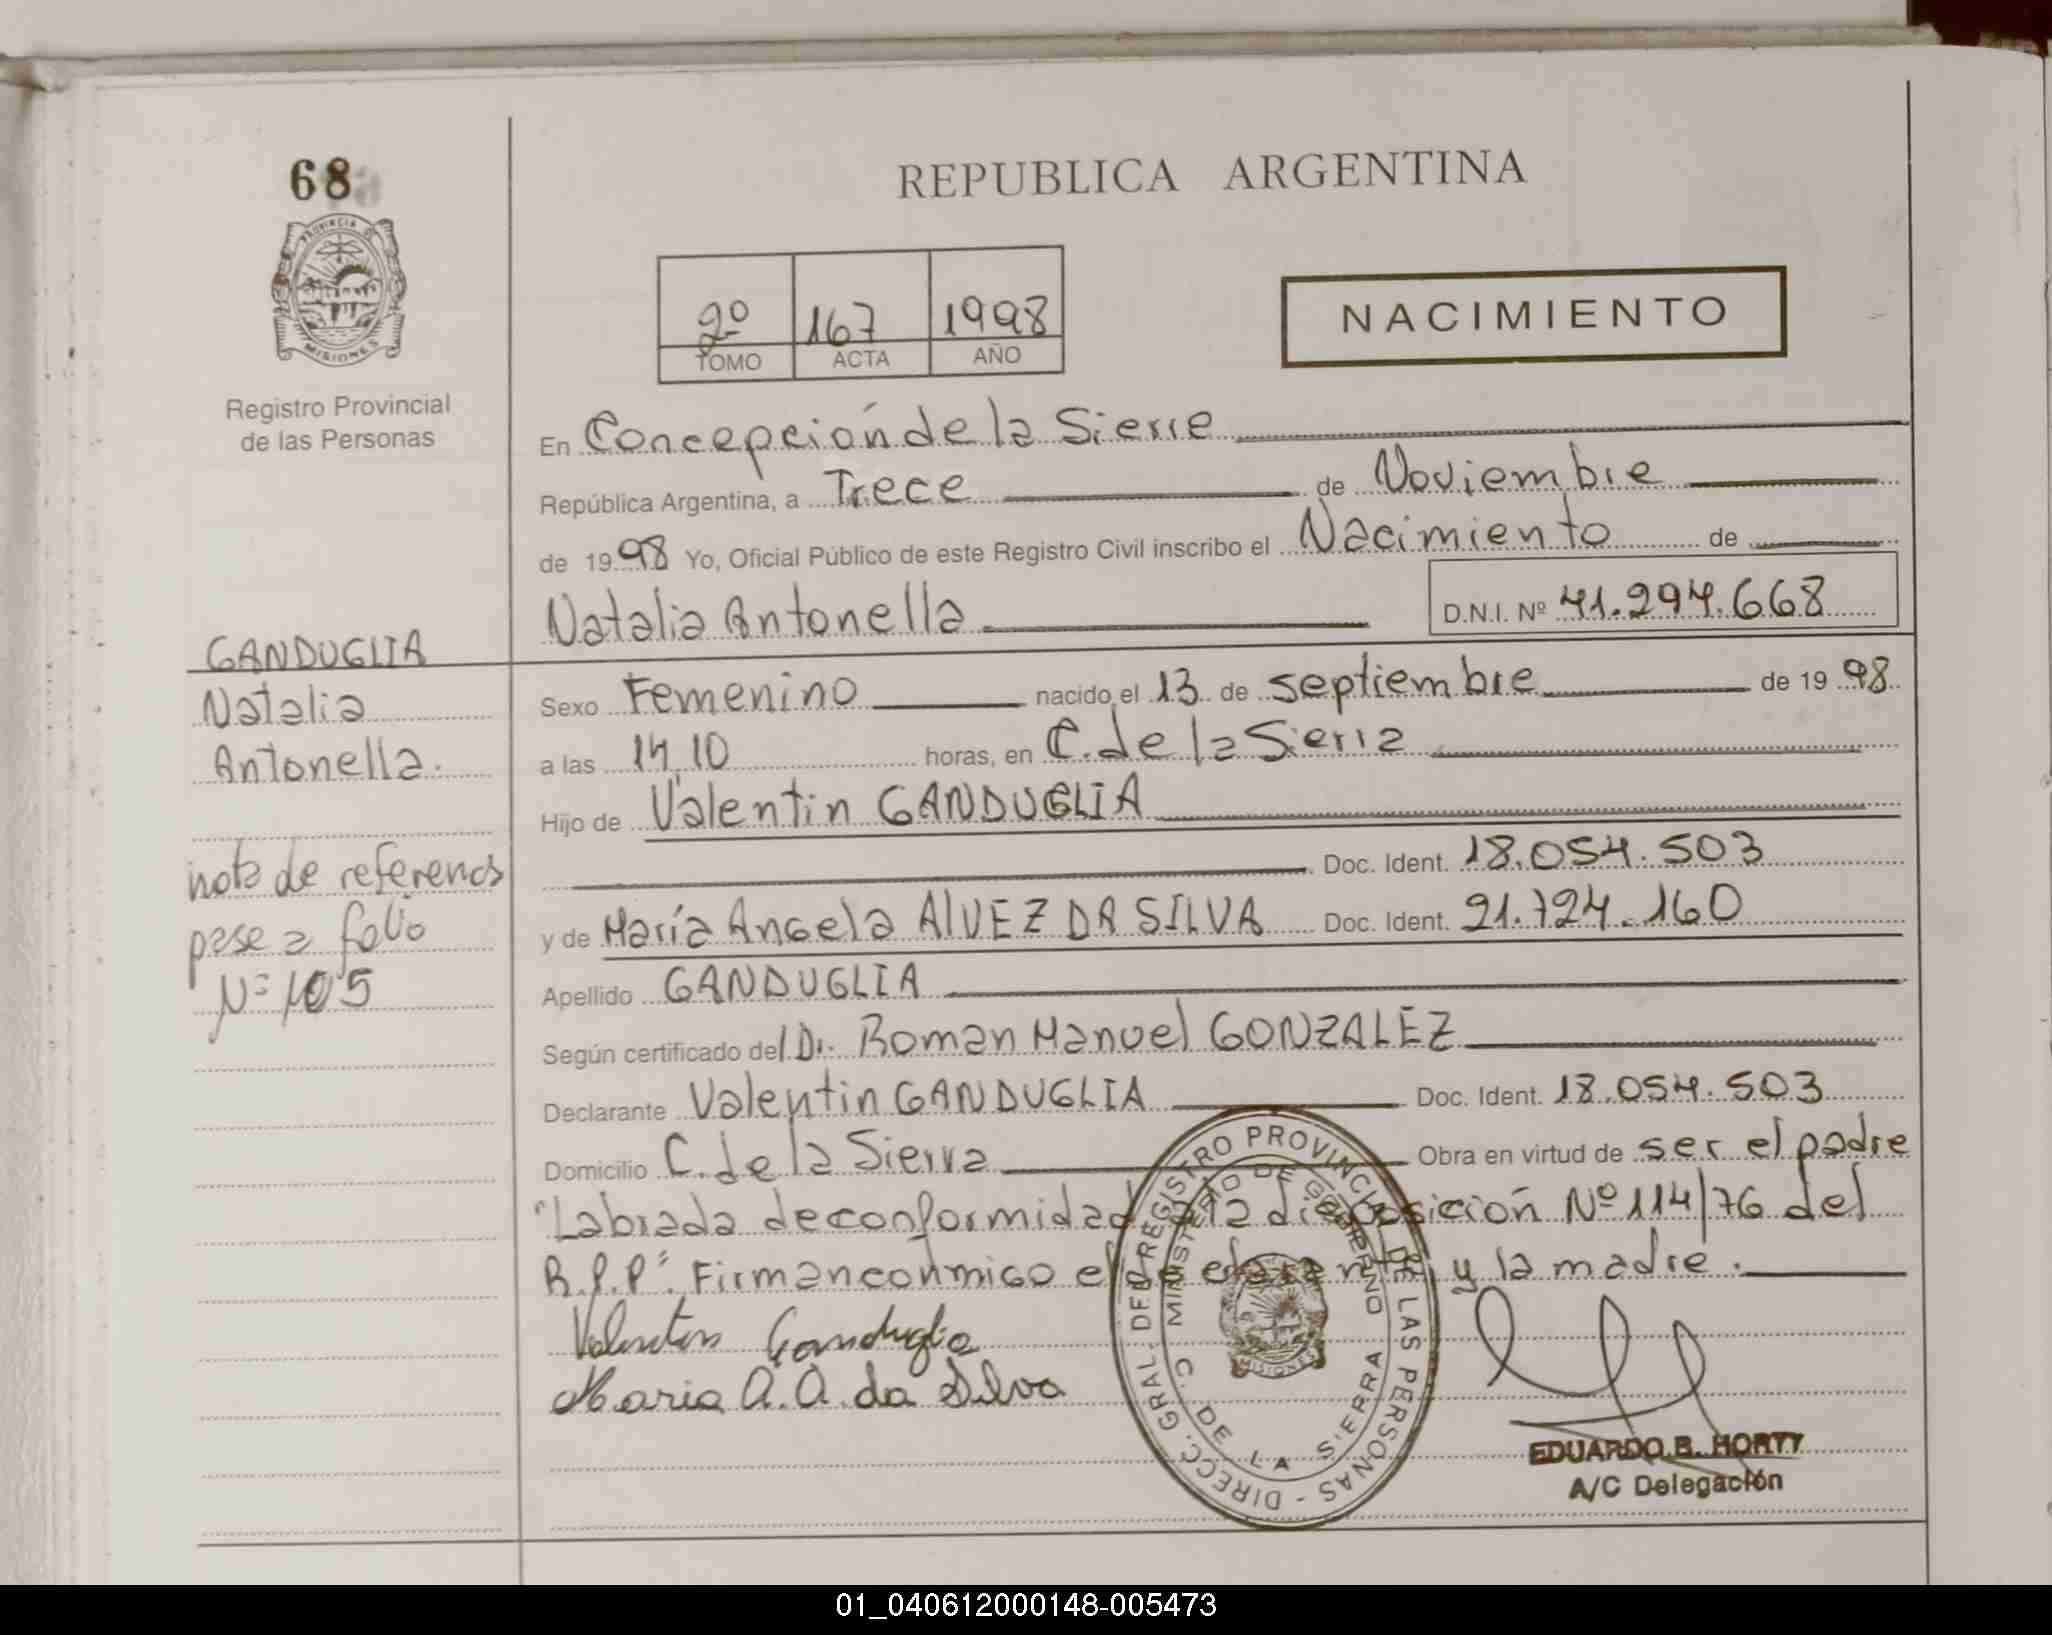 68
REPUBLICA ARGENTINA
PROVINCIA D
MISIONES
Registro Provincial
de las Personas
2º 167 1998
TOMO ACTA AÑO
NACIMIENTO
En Concepción de la Sierra
República Argentina, a Trece de Noviembre
de 1998 Yo, Oficial Público de este Registro Civil inscribo el Nacimiento de
Natalia Antonella D.N.I. Nº 41.294.668
GANDUGLIA
Natalia
Antonella.
nota de referencia
pase a folio
Nº 105
Sexo Femenino nacido el 13 de septiembre de 1998
a las 14,10 horas, en C. de la Sierra
Hijo de Valentin GANDUGLIA
Doc. Ident. 18.054.503
y de María Angela AlVEZ DA SILVA Doc. Ident. 21.724.160
Apellido GANDUGLIA
Según certificado del Dr. Roman Manuel GONZALEZ
Declarante Valentin GANDUGLIA Doc. Ident. 18.054.503
Domicilio C. de la Sierra Obra en virtud de ser el padre
"Labrada de conformidad a la disposición Nº 114/76 del
R.P.P". Firman conmigo el declarante y la madre.
Valentin Ganduglia
Maria A. A. da Silva
DIRECC. GRAL. DEL REGISTRO PROVINCIAL DE LAS PERSONAS -
MINISTERIO DE GOBIERNO
C. DE LA SIERRA
MISIONES
EDUARDO B. HORTY
A/C Delegación
01_040612000148-005473